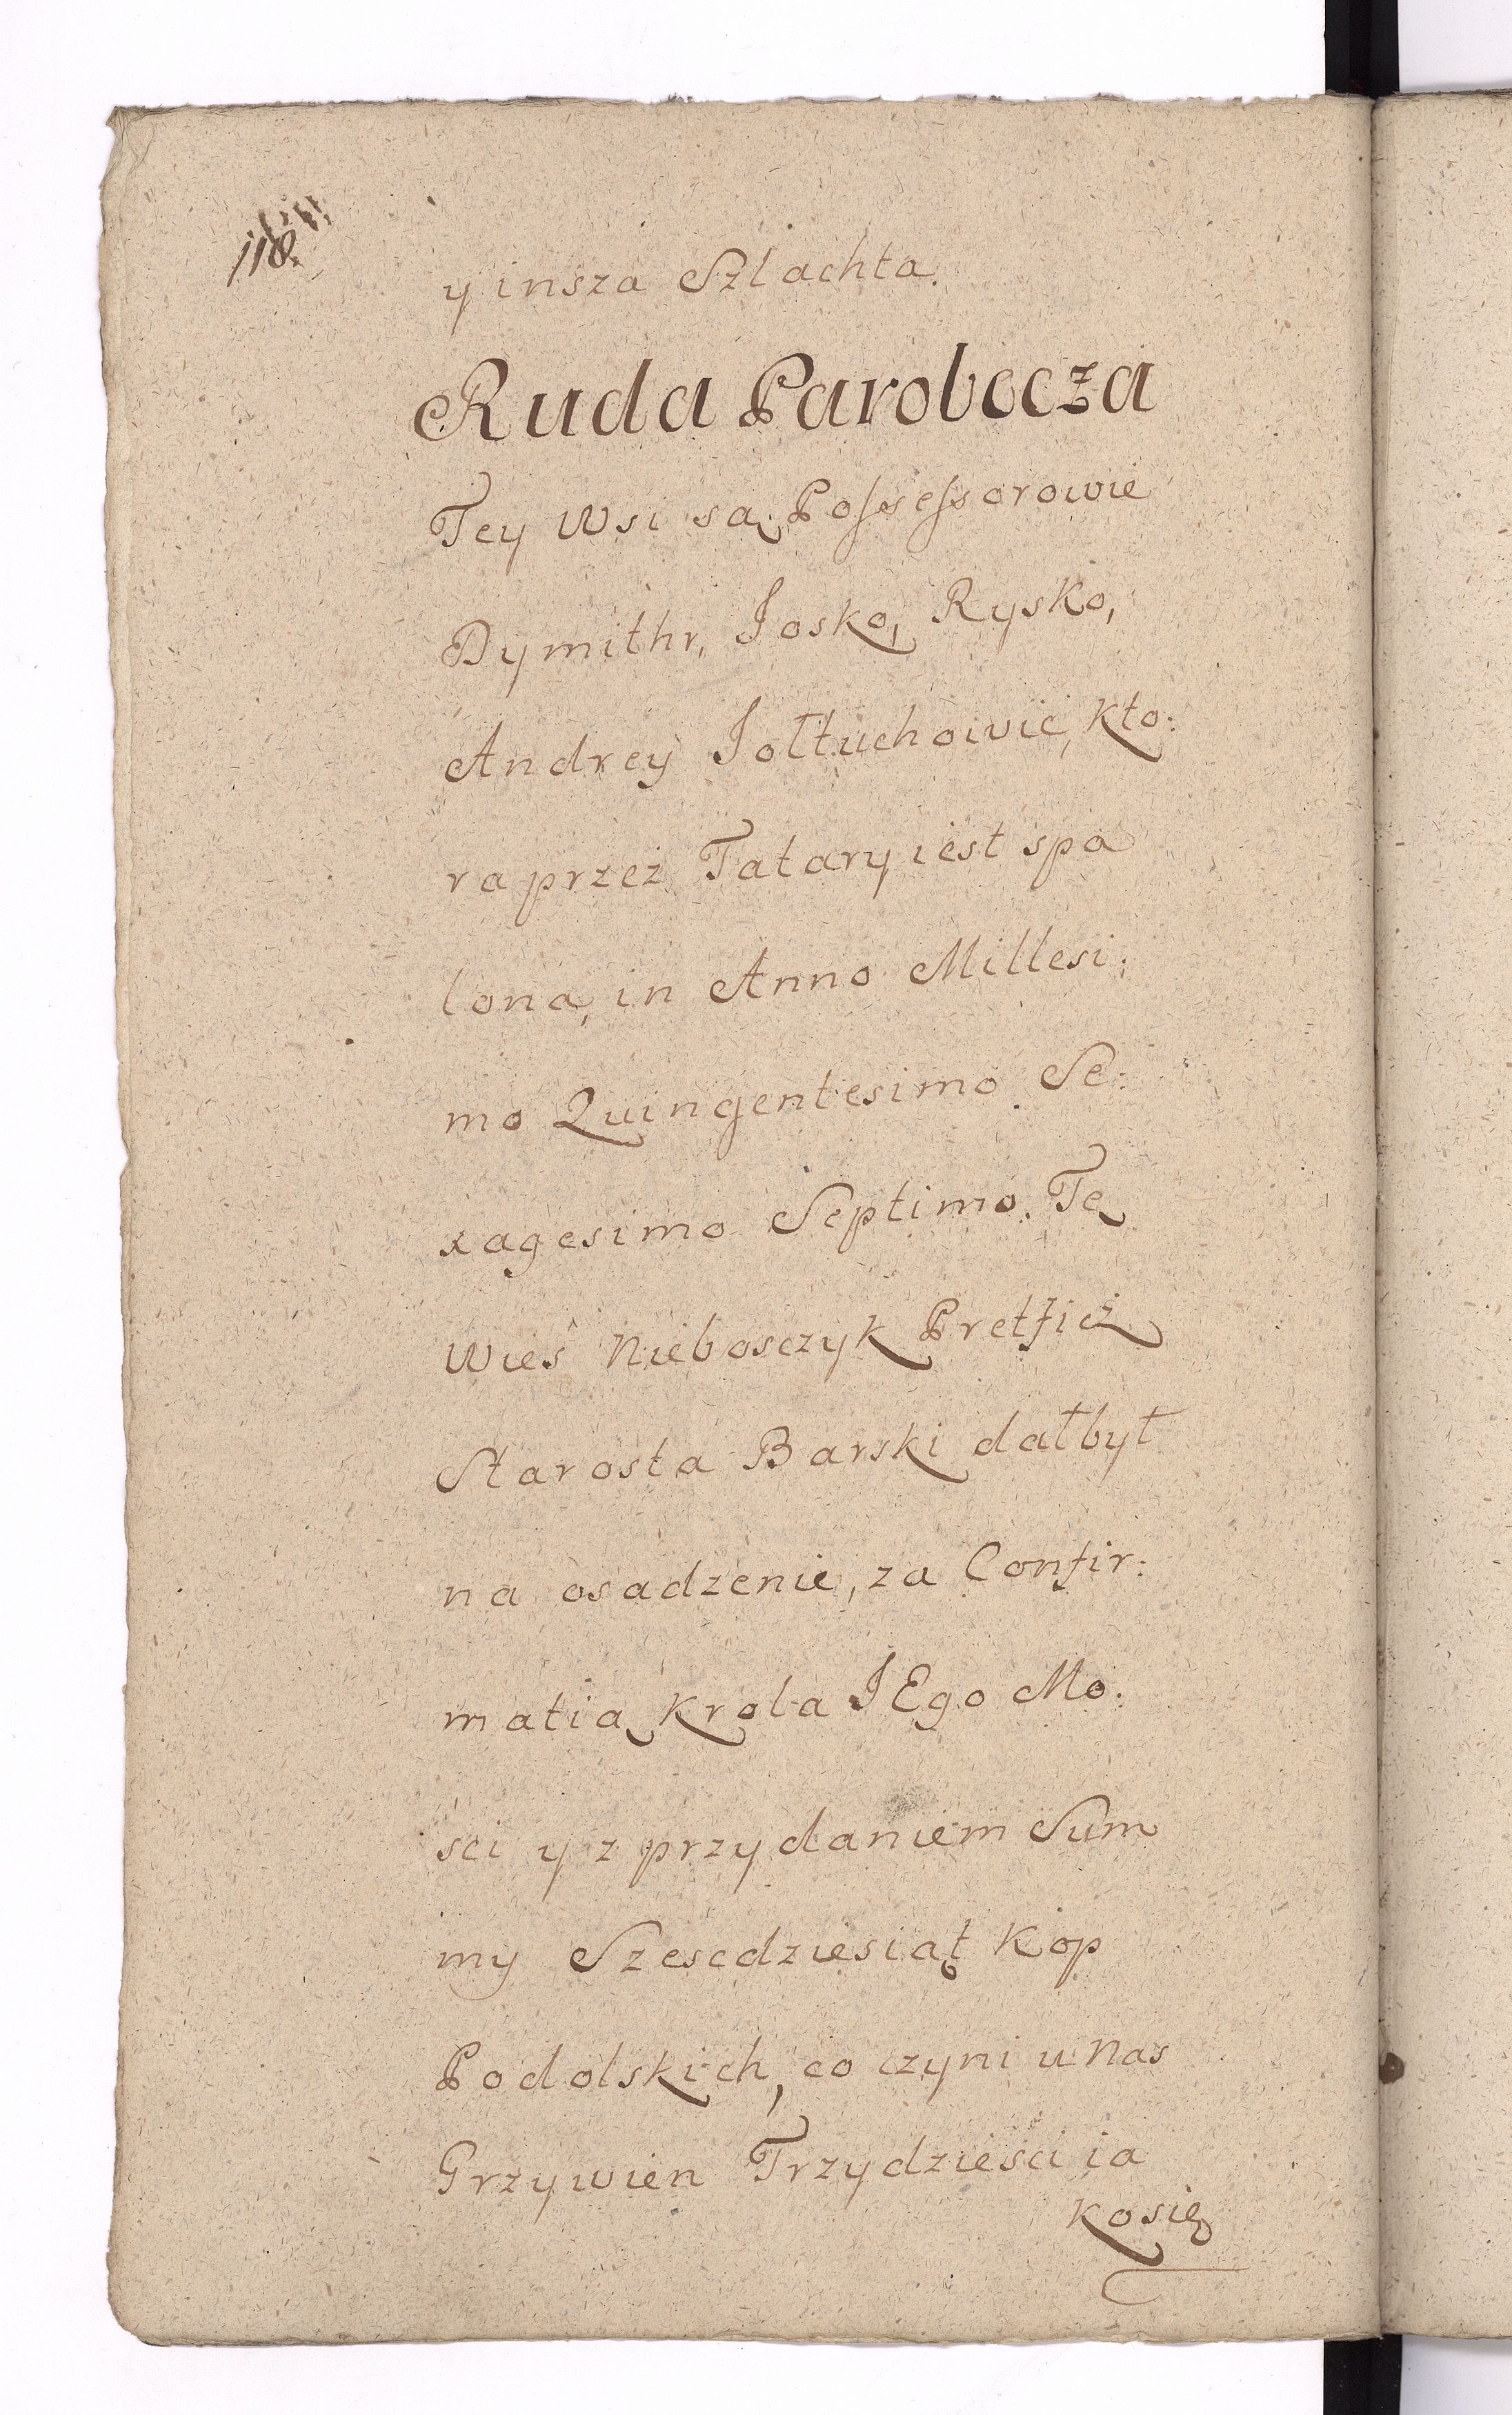 118.
y insza Szlachta.
Ruda Parobocza
Tey Wsi są Possessorowie
Dymithr, Josko, Rysko,
Andrey Jołtuchowie, kto:
ra przez Tatary iest spa
lona, in Anno Millesi:
mo Quingentesimo Se:
xagesimo Septimo. Tę
Wieś Niebosczyk Pretficz
Starosta Barski dał był
na osadzenie, za Confir:
matią Krola JEgo Mo:
sci y z przydaniem Sum
my Szescdziesiąt Kop
Podolskich, co czyni u Nas
Grzywien Trzydziesci ia
kosię